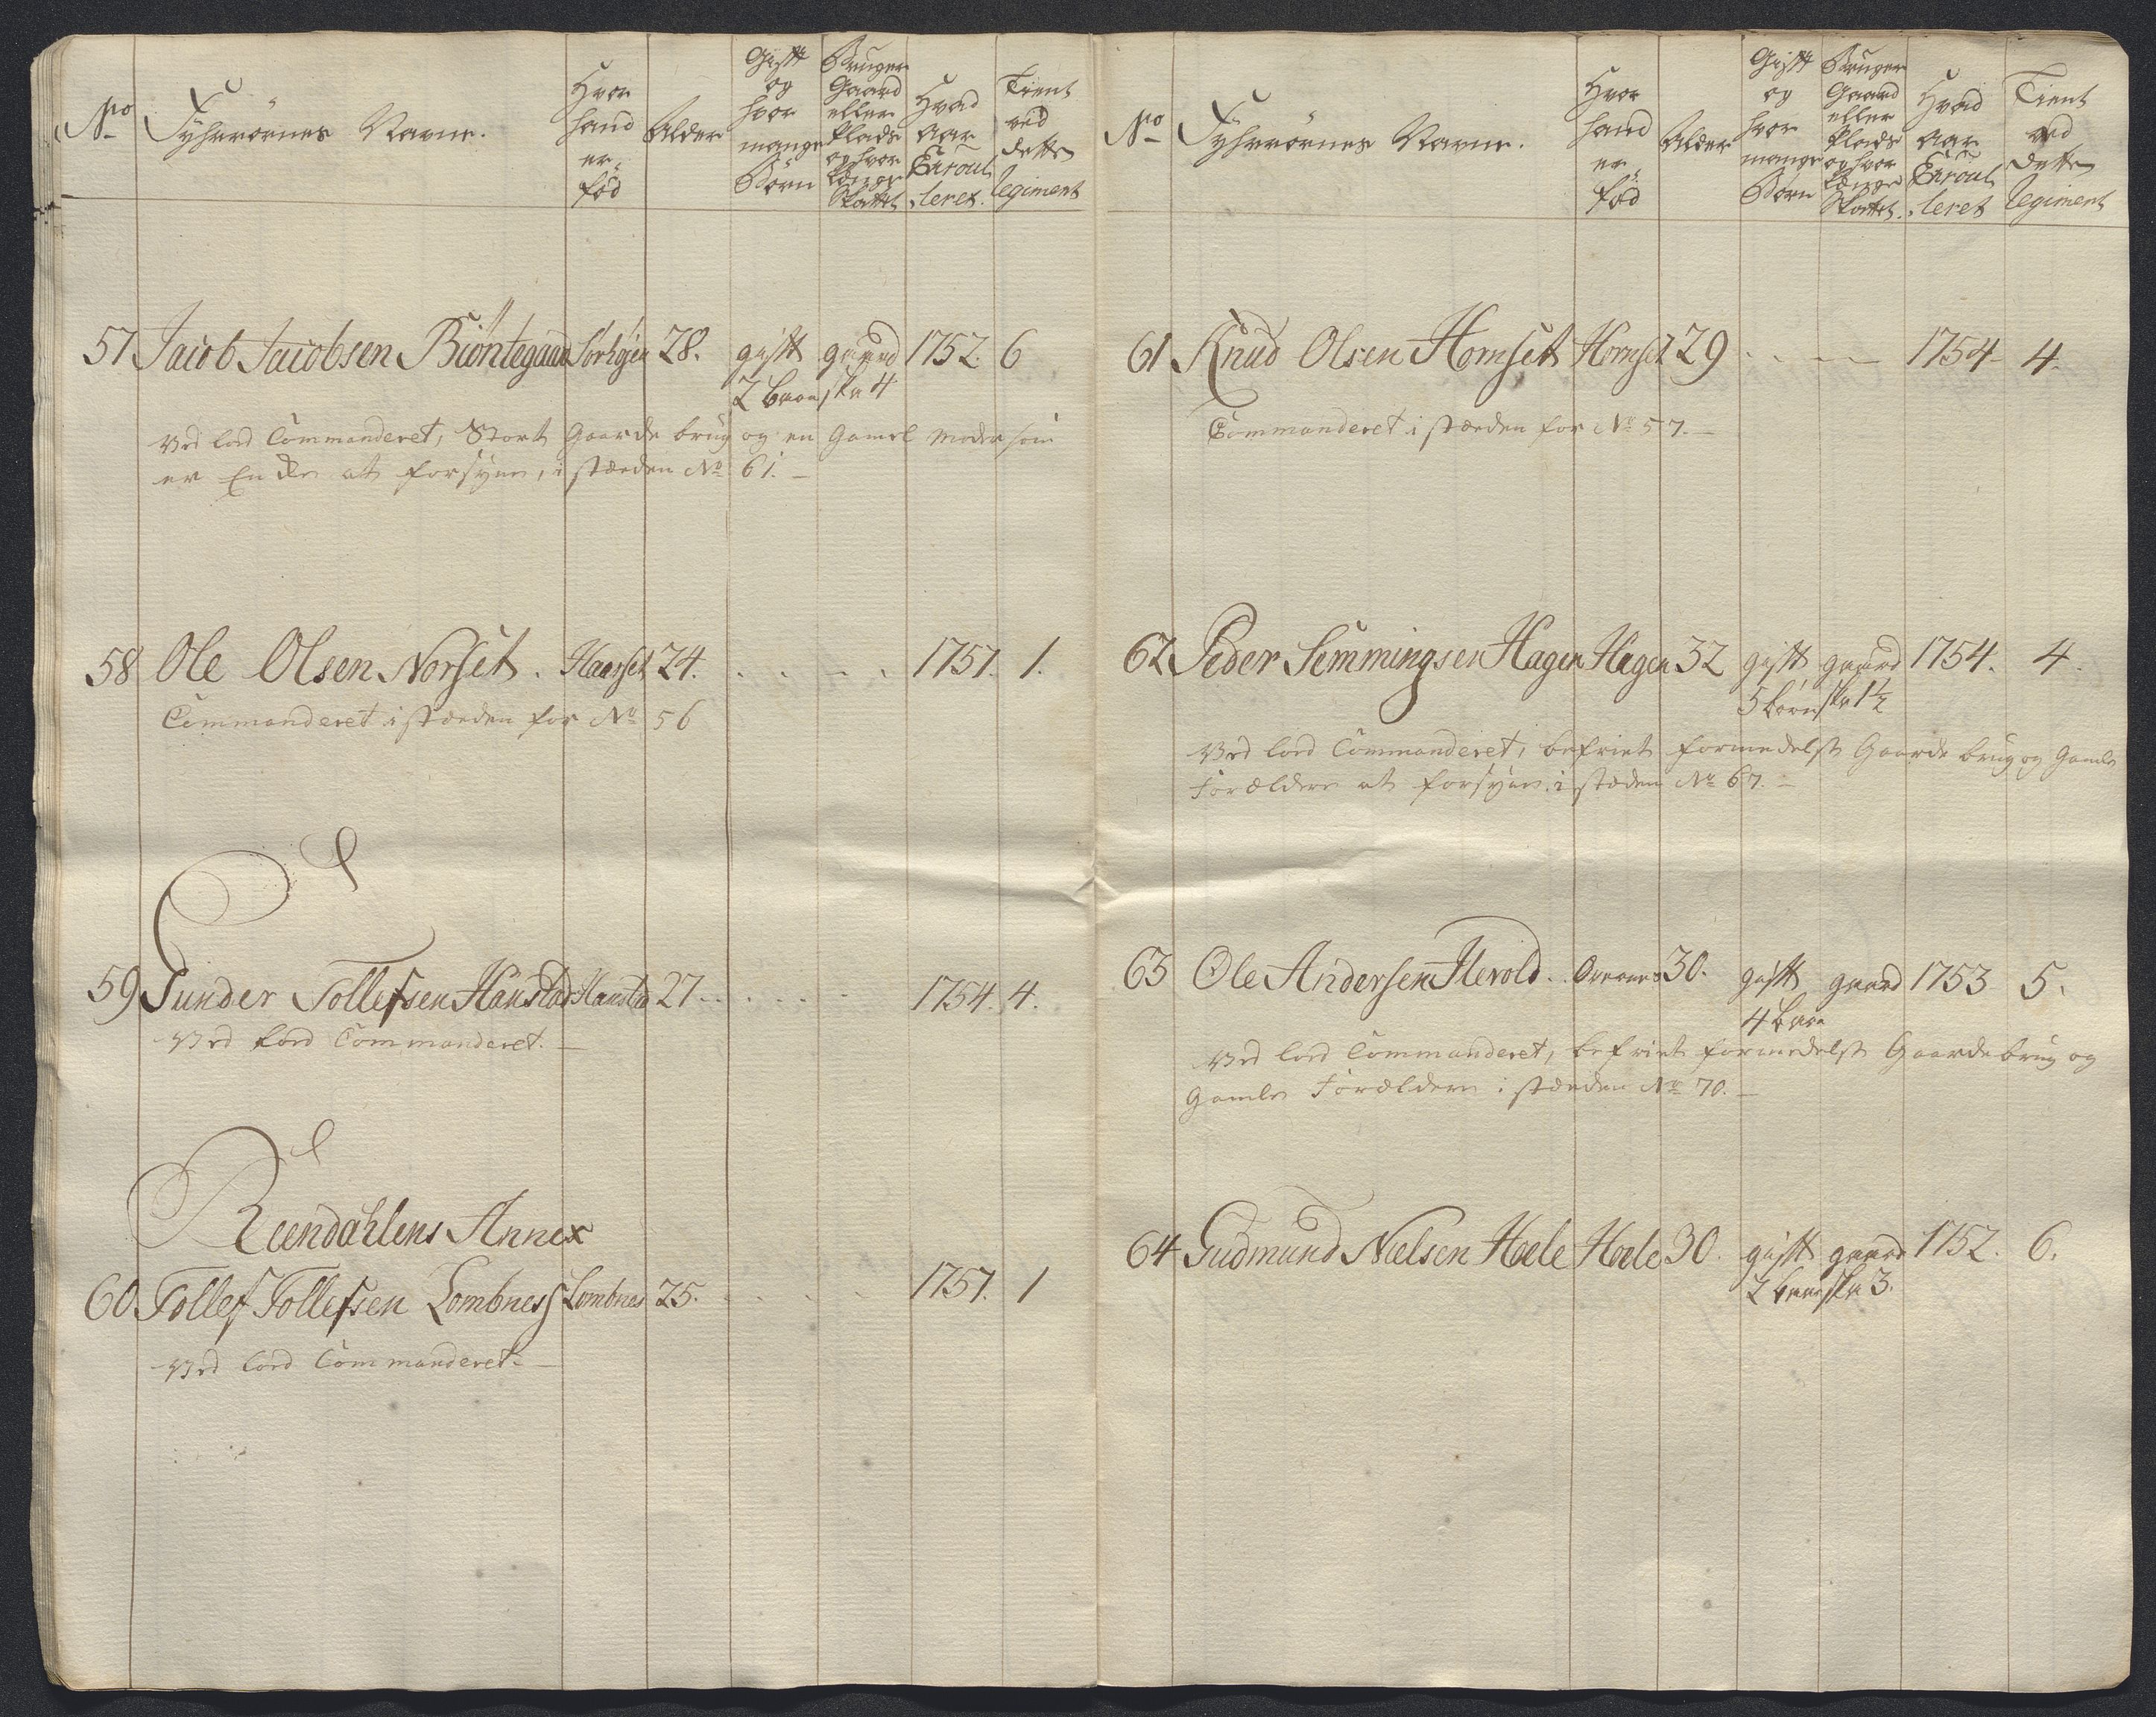 No
Fyhrrörnes Navne.
Hvor
hand
er
fød
Alder
Gift
og
hvor
mange
Börn
Bruger
Gaard
eller
Plads
og hvor
Længe
Skattet
Hvad
Aar
Enroul
leret.
Tient
ved
dette
Regiment
57 Jacob Jacobsen Biöntegaard Sörhøjen 28. gift gaard 1752. 6
2 börn skr 4
Ved lod Commanderet, Stort Gaarde brug og en Gamel Moder som
er Enke at forsyne, i stæden No 61.
58 Ole Olsen Norset. Haarset 24. . . . . 1757. 1.
Commanderet i stæden for No 56
59 Gunder Tollefsen Hanstad Hanstad 27 . . . . 1754. 4.
Ved lod Commanderet.
Reendahlens Annex
60 Tollef Tollefsen Lombness Lombnes 25. . . . . 1757. 1
Ved lod Commanderet.
No
Fyhrrörnes Navne.
Hvor
hand
er
fød
Alder
Gift
og
hvor
mange
Börn
Bruger
Gaard
eller
Plads
og hvor
Længe
Skattet.
Hvad
Aar
Enroul
leret
Tient
ved
dette
Regiment
61 Knud Olsen Hornset Hornset 29 . . . . 1754 4.
Commanderet i stæden for No 57.
62 Peder Semmingsen Hagen Hagen 32 gift gaard 1754. 4.
5 börn skr 1½
Ved lod Commanderet, befriet formedelst Gaarde brug og Gamle
Forældre at forsyne i stæden No 67.
63 Ole Andersen Herold. 30. gift gaard 1753 5.
4 börn
Ved lod Commanderet, befriet formedelst Gaardebrug og
Gamle Forældre i stæden No 70.
64 Gudmund Nielsen Hoele Hoele 30. gift gaard 1752. 6.
2 börn skr 3.